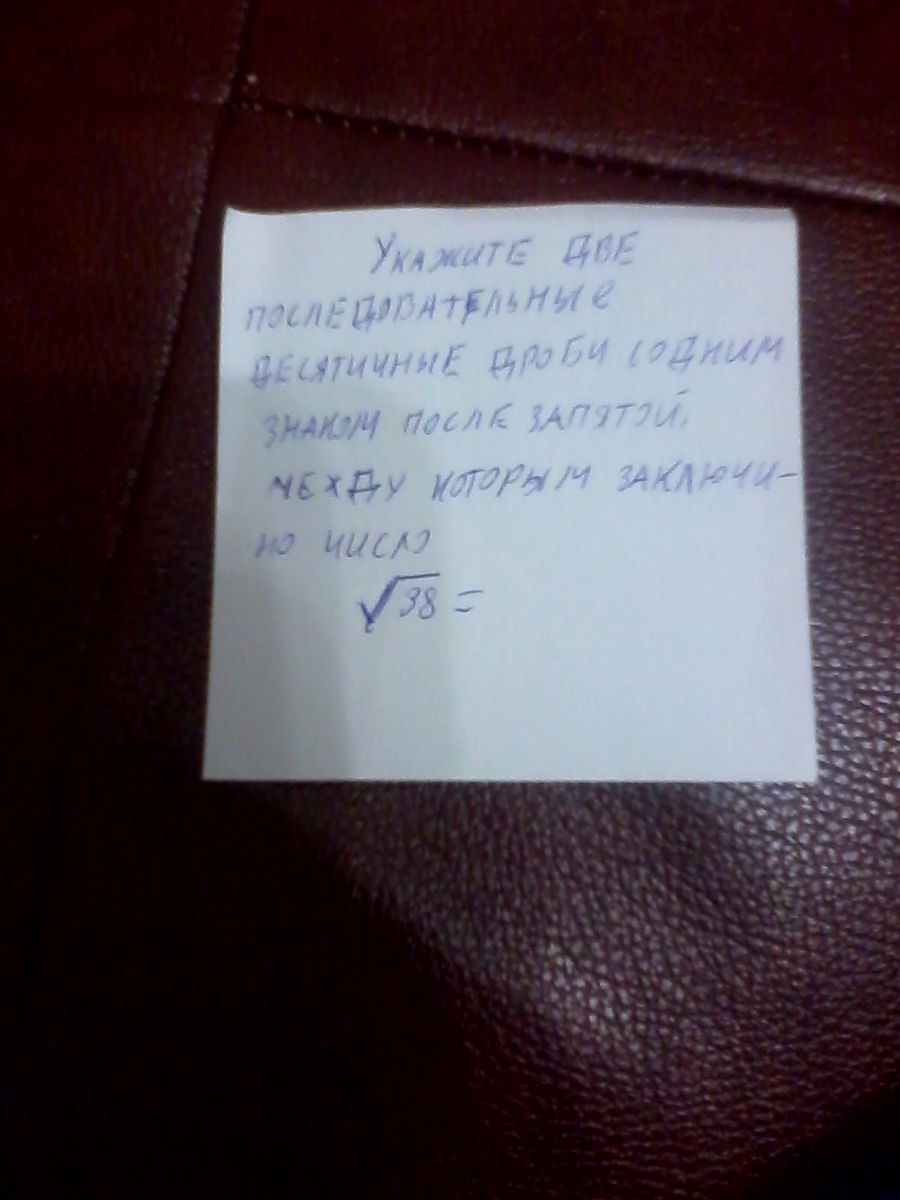 Укажите две
последовательные
десятичные дроби с одним
знаком после запятой,
между которым заключи-
но число
√38 =